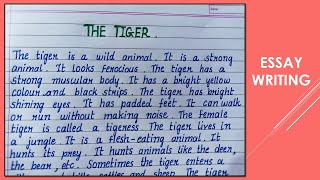 THE TIGER.
The tiger is a wild animal. It is a strong
animal. It looks ferocious. The tiger has a
strong muscular body. It has a bright yellow
colour and black strips. The tiger has bright
shining eyes. It has padded feet. It can walk
or run without making noise. The female
tiger is called a tigeress. The tiger lives in
a jungle. It is a flesh-eating animal. It
hunts its prey. It hunts animals like the deer,
the bear, etc. Sometimes the tiger enters a
and sheep. The tiger
ESSAY
WRITING